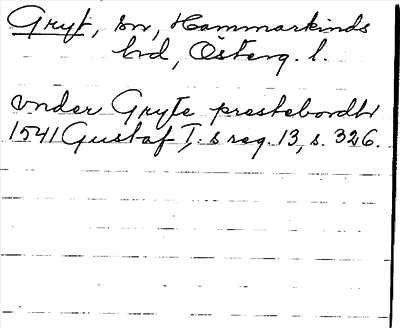 Gryt, sn, Hammarkinds
hd, Österg. l.
vnder Gryte prestebordh
1541 Gustaf I:s reg. 13, s. 326.